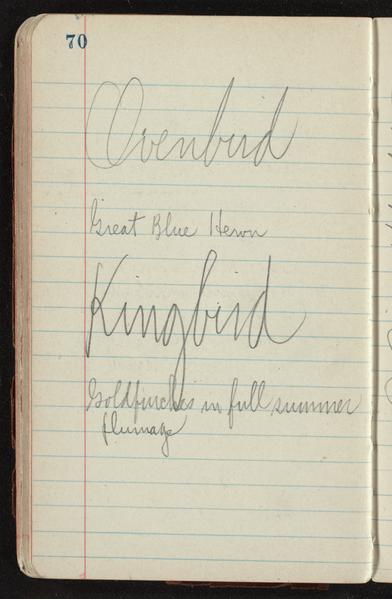 70
Ovenbird
Great Blue Heron
Kingbird
Goldfinches in full summer
plumage